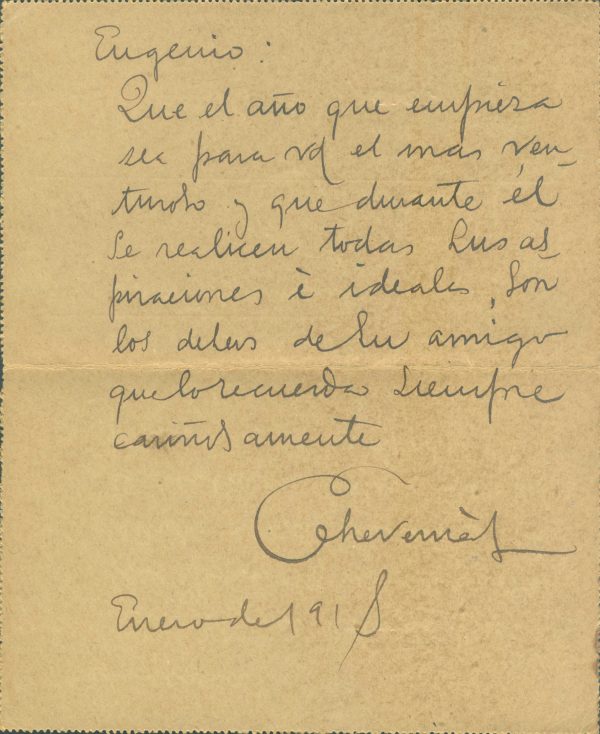 Eugenio:
Que el año que empieza
sea para vd el mas ven-
turoso y que durante él
se realicen todas sus as-
piraciones è ideales, son
los deseos de su amigo
que lo recuerda siempre
cariñosamente
Enero de 1918